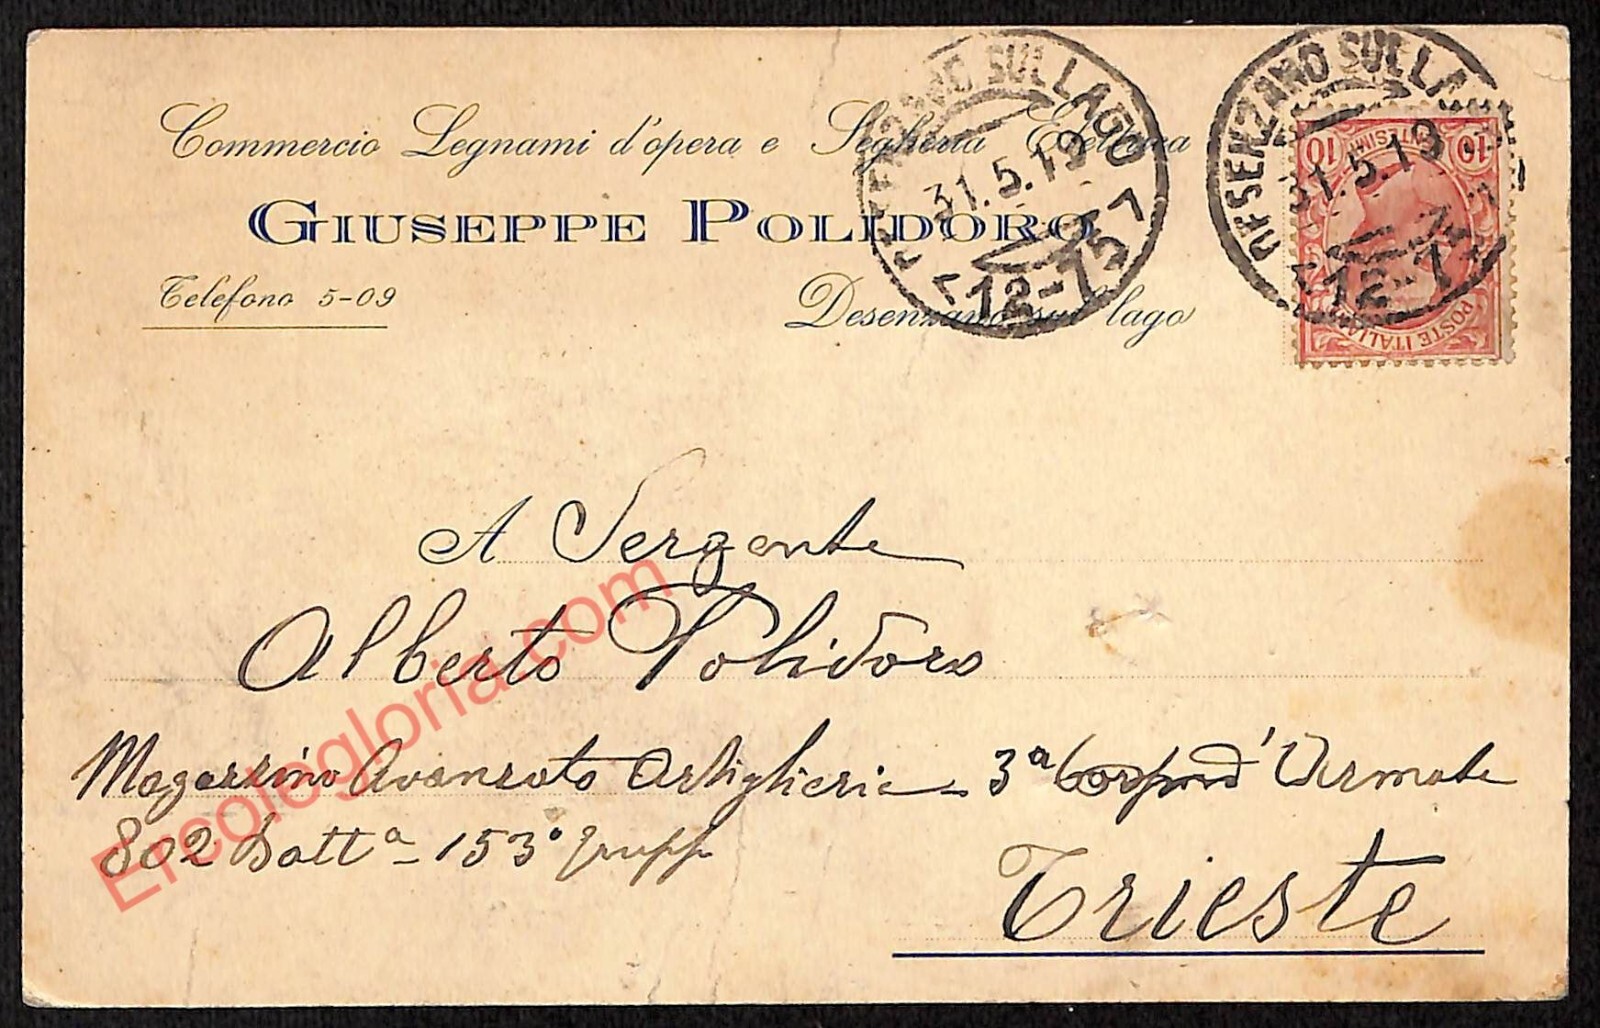 Commercio Legnami d'opera e Segheria Elettrica
GIUSEPPE POLIDORO
Telefono 5-09
Desenzano sul lago
DESENZANO SUL LAGO
31.5.19
12-15
DESENZANO SUL LAGO
31.5.19
12-1
10 10
POSTE ITALIA
A Sergente
Alberto Polidoro
Magazzino Avanzato Artiglieria - 3ª Corpo d'Armata
802 Battª - 153° Grupp
Trieste
Ercolegloria.com